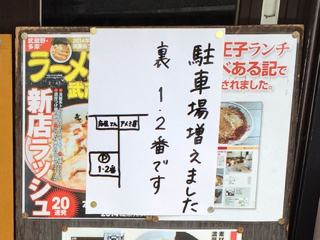 武蔵野・
多摩
ラーメ
武蔵
新店ラッシュ
20
連発
2014
駐車場増えました
裏 1.2番です
P
1・2番
王子ランチ
べある記で
されました。